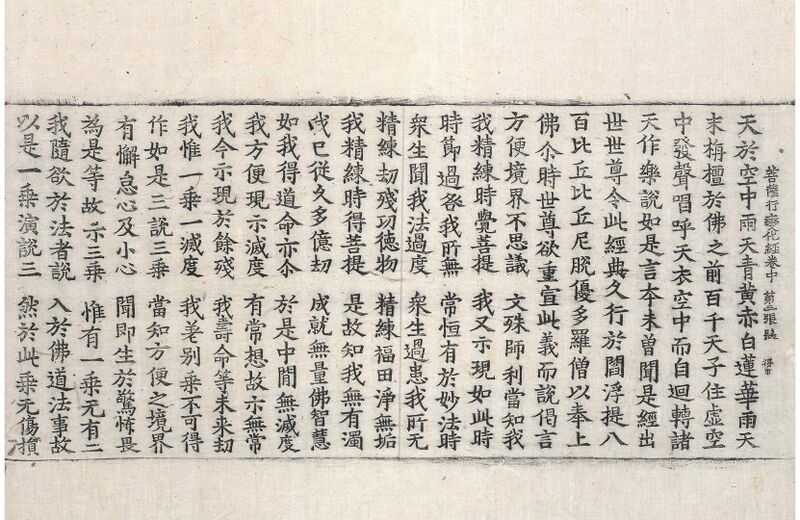 菩薩行變化經卷中 第二張 得
天於空中雨天青黃赤白蓮華雨天
末栴檀於佛之前百千天子住虛空
中發聲唱呼天衣空中而自迴轉諸
天作樂說如是言本未曾聞是經出
世世尊令此經典久行於閻浮提八
百比丘比丘尼脫優多羅僧以奉上
佛尒時世尊欲重宣此義而說偈言
方便境界不思議 文殊師利當知我
我精練時覺菩提 我又示現如此時
時節過衆我所無 常恒有於妙法時
衆生聞我法過度 衆生過患我所无
精練劫殘功德物 精練福田淨無垢
我精練時得菩提 是故知我無有濁
我已從久多億劫 成就無量佛智慧
如我得道命亦尒 於是中閒無滅度
我方便現示滅度 有常想故示無常
我今示現於餘殘 我壽命等未來劫
我惟一乘一滅度 我差別乘不可得
作如是三說三乘 當知方便之境界
有懈怠心及小心 聞即生於驚怖畏
為是等故示三乘 惟有一乘无有二
我隨欲於法者說 入於佛道法事故
以是一乘演說三 然於此乘无傷損